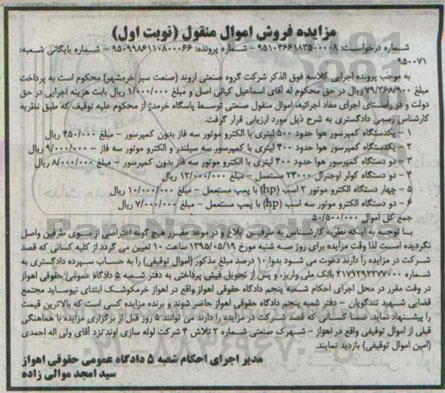 مزایده فروش اموال منقول (نوبت اول)
شماره درخواست: ۹۵۱۰۴۶۶۱۸۳۵۰۰۰۰۸ – شماره پرونده: ۹۵۰۹۹۸۶۱۱۰۸۰۰۰۶۶ – شماره بایگانی شعبه:
۹۵۰۰۷۱
به موجب پرونده اجرایی کلاسه فوق الذکر شرکت گروه صنعتی اروند (صنعت سبز خرمشهر) محکوم است به پرداخت
مبلغ ۷۹/۳۶۸/۹۰۰ ریال در حق محکوم له آقای اسماعیل کیانی اصل و مبلغ ۱/۰۰۰/۰۰۰ ریال بابت هزینه اجرایی در حق
دولت و در راستای اجرای مفاد اجرائیه، اموال منقول صنعتی توسط پاسگاه خرمدژ از محکوم علیه توقیف که طبق نظریه
کارشناس رسمی دادگستری به شرح ذیل مورد ارزیابی قرار گرفت.
۱ – یکدستگاه کمپرسور هوا حدود ۵۰۰ لیتری با الکترو موتور سه فاز بدون کمپرسور – مبلغ ۴۵۰/۰۰۰ ریال
۲ – یکدستگاه کمپرسور هوا حدود ۴۰۰ لیتری با کمپرسور سه سیلندر و الکترو موتور سه فاز – ۹/۰۰۰/۰۰۰ ریال
۳ – دو دستگاه کمپرسور هوا حدود ۴۰۰ لیتری با الکترو موتور سه فاز بدون کمپرسور – مبلغ ۸/۰۰۰/۰۰۰ ریال
۴ – دو دستگاه کولر اوجنرال ۲۴۰۰۰ مستعمل – مبلغ ۱۲/۰۰۰/۰۰۰ ریال
۵ – چهار دستگاه الکترو موتور ۲ اسب (hp) با پمپ مستعمل – مبلغ ۱۰/۰۰۰/۰۰۰ ریال
۶ – دو دستگاه الکترو موتور سه اسب (hp) با پمپ مستعمل – مبلغ ۷/۰۰۰/۰۰۰ ریال
جمع کل اموال ۵۰/۵۰۰/۰۰۰
با توجه به اینکه نظریه کارشناس به طرفین ابلاغ و در موعد مقرر هیچ گونه اعتراضی از سوی طرفین واصل
نگردیده است لذا وقت مزایده برای روز سه شنبه مورخ ۱۳۹۵/۰۵/۱۹ ساعت ۱۰ تعیین می گردد از کلیه کسانی که قصد
شرکت در مزایده را دارند دعوت می شود بدوا ۱۰ درصد مبلغ مذکور (اموال توقیفی) را به حساب سپرده دادگستری به
شماره ۲۱۷۱۲۹۲۳۲۷۷۰۰۰ بانک ملی واریز و پس از تحویل فیش پرداختی به دفتر شعبه ۵ دادگاه عمومی حقوقی اهواز
در وقت مقرر در محل اجرای احکام شعبه پنجم دادگاه حقوقی اهواز واقع در اهواز خرمکوشک ابتدای نیوساید مجتمع
قضایی شهید تندگویان – دفتر شعبه پنجم دادگاه حقوقی اهواز حاضر شوند و برنده مزایده کسی است که بالاترین قیمت
را پیشنهاد نماید ضمنا کسانی که قصد شرکت در مزایده را دارند می توانند ۵ روز قبل از برگزاری مزایده با هماهنگی
قبلی از اموال توقیفی واقع در اهواز – شهرک صنعتی شماره ۲ تلاش ۴ شرکت لوله سازی اوند نزد آقای ولی اله احمدی
(امین اموال توقیفی) بازدید نمایند.
مدیر اجرای احکام شعبه ۵ دادگاه عمومی حقوقی اهواز
سید امجد موالی زاده